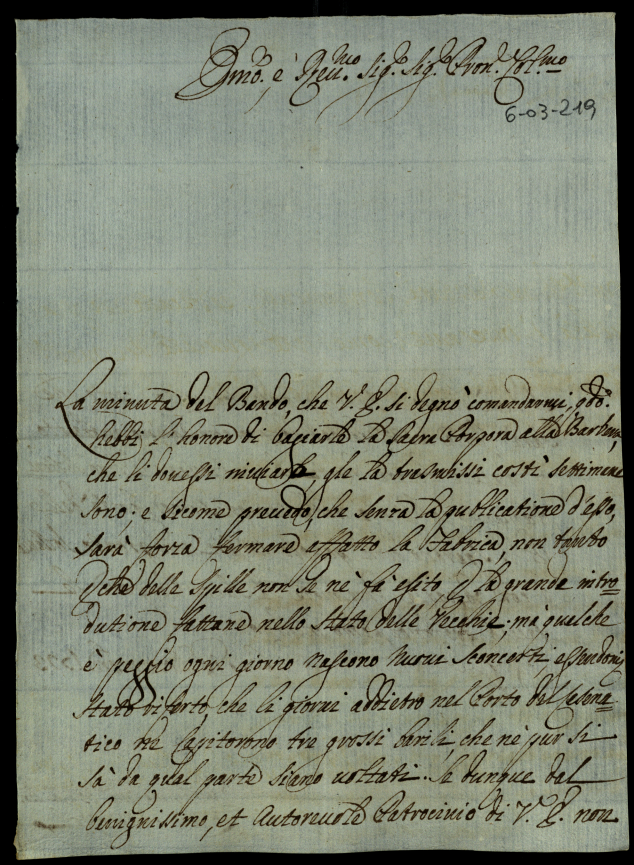 Emo. e Reu.mo Sig.r Sig.r Pron. Col.mo
6-03-219
La minuta del Bando, che V. E. si degnò comandarmi, qdo.
hebbi l'honore di baciarle la Sacra Porpora alla
che li douessi inuiarle, gle la trasmissi costì settimane
sono; e sicome preuedo, che senza la publicatione d'esso,
sarà forza fermare affatto la fabrica, non tanto
delle Spille non se nè fà esito, la grande intro=
dutione fattane nello Stato delle Vecchie; mà quelche
è peggio ogni giorno nascono nuoui sconcerti essendomi
stato riferto, che li giorni addietro nel Porto del Cesena=
tico ne Capitorono tre grossi barili, che nè pur si
sà da qual parte siano uoltati. Se dunque dal
benignissimo, et Autoreuole Patrocinio di V. E. non